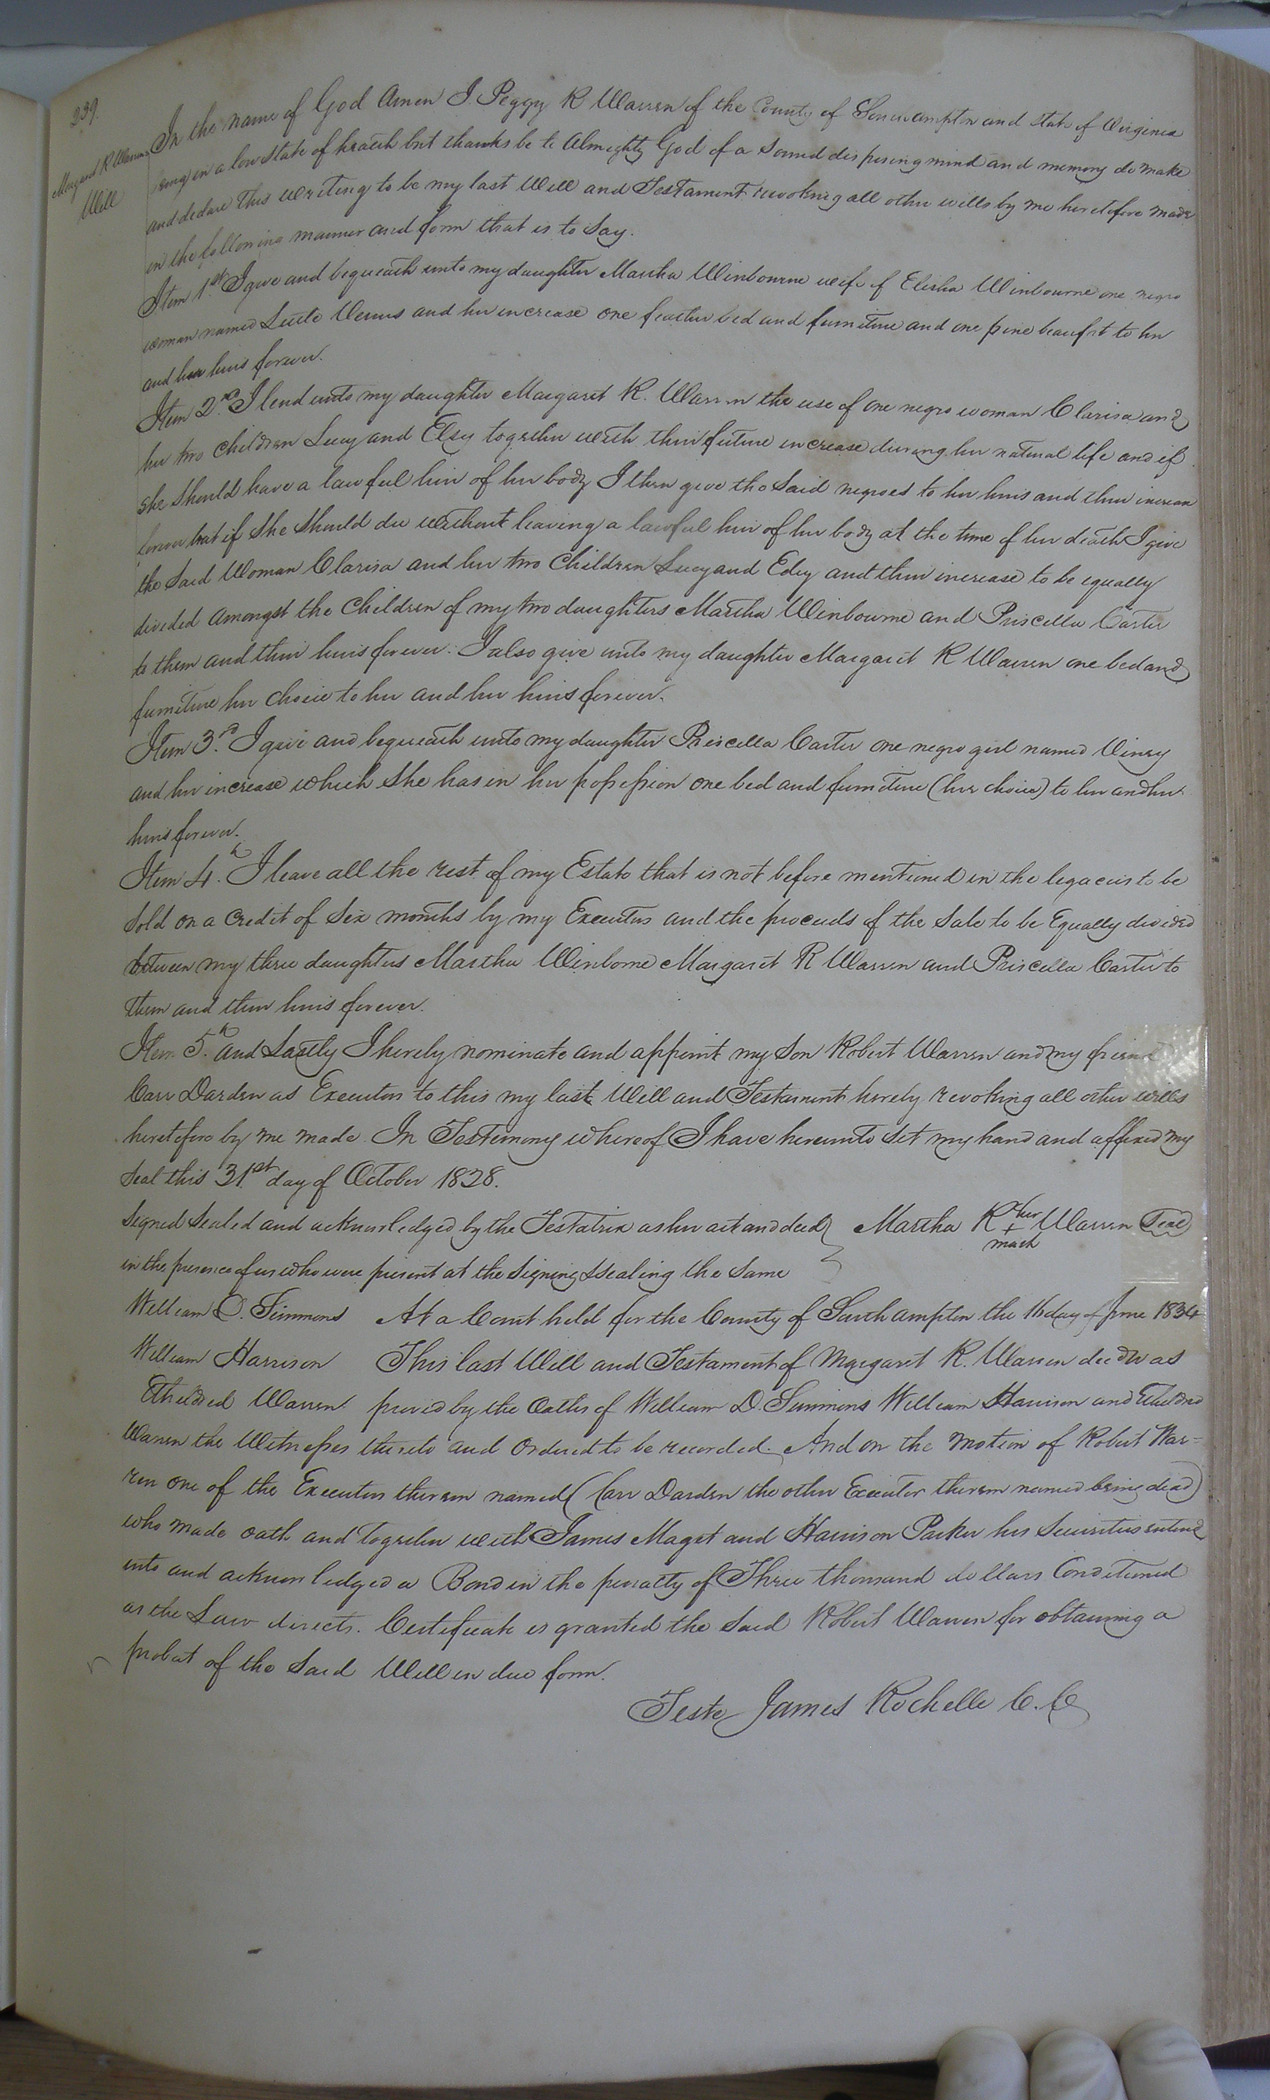 239.
Margaret R Warrens
Will
In the name of God Amen I Peggy R Warren of the County of Southampton and State of Virginia
being in a low state of health but thanks be to Almighty God of a Sound disposing mind and memory do make
and declare this writing to be my last Will and Testament revoking all other wills by me heretofore made
in the following manner and form that is to Say.
Item 1.st I give and bequeath unto my daughter Martha Winbourne wife of Elisha Winbourne one negro
woman named Little Venus and her increase one feather bed and furniture and one pine beaufat to her
and her heirs forever.
Item 2.nd I lend unto my daughter Margaret R. Warren the use of one negro woman Clarisa and
her two children Lucy and Elsy together with their future increase during her natural life and if
she Should have a lawful heir of her body I then give the Said negroes to her heirs and their increase
forever but if She Should die without leaving a lawful heir of her body at the time of her death I give
the Said Woman Clarisa and her two Children Lucy and Edey and their increase to be equally
divided amongst the Children of my two daughters Martha Winbourne and Priscilla Carter
to them and their heirs forever. I also give unto my daughter Margaret R Warren one bed and
furniture her choice to her and her heirs forever.
Item 3.rd I give and bequeath unto my daughter Priscilla Carter one negro girl named Viney
and her increase which She has in her possession one bed and furniture (her choice) to her and her
heirs forever.
Item 4.th I leave all the rest of my Estate that is not before mentioned in the legacies to be
Sold on a Credit of Six months by my Executors and the proceeds of the Sale to be Equally divided
between my three daughters Martha Winborne Margaret R Warren and Priscilla Carter to
them and their heirs forever.
Item 5.th and Lastly I hereby nominate and appoint my Son Robert Warren and my friend
Carr Darden as Executors to this my last Will and Testament hereby revoking all other wills
heretofore by me made In Testimony whereof I have hereunto Set my hand and affixed my
Seal this 31.st day of October 1828.
Signed Sealed and acknowledged by the Testatrix as her act and deed } Martha R her + mark Warren Seal
in the presence of us who were present at the Signing & sealing the Same
William D. Simmons At a Court held for the County of Southampton the 16 day of June 1834
William Harrison This last Will and Testament of Margaret R. Warren decd was
Etheldred Warren proved by the Oaths of William D. Simmons William Harrison and Etheldred
Warren the Witnesses thereto and Ordered to be recorded. And on the Motion of Robert War=
ren one of the Executors therein named (Carr Darden the other Executor therein named being dead)
who made oath and together with James Maget and Harrison Parker his Securities entered
into and acknowledged a Bond in the penalty of Three thousand dollars Conditioned
as the Law directs. Certificate is granted the Said Robert Warren for obtaining a
probat of the Said Will in due form.
Teste James Rochelle C. C